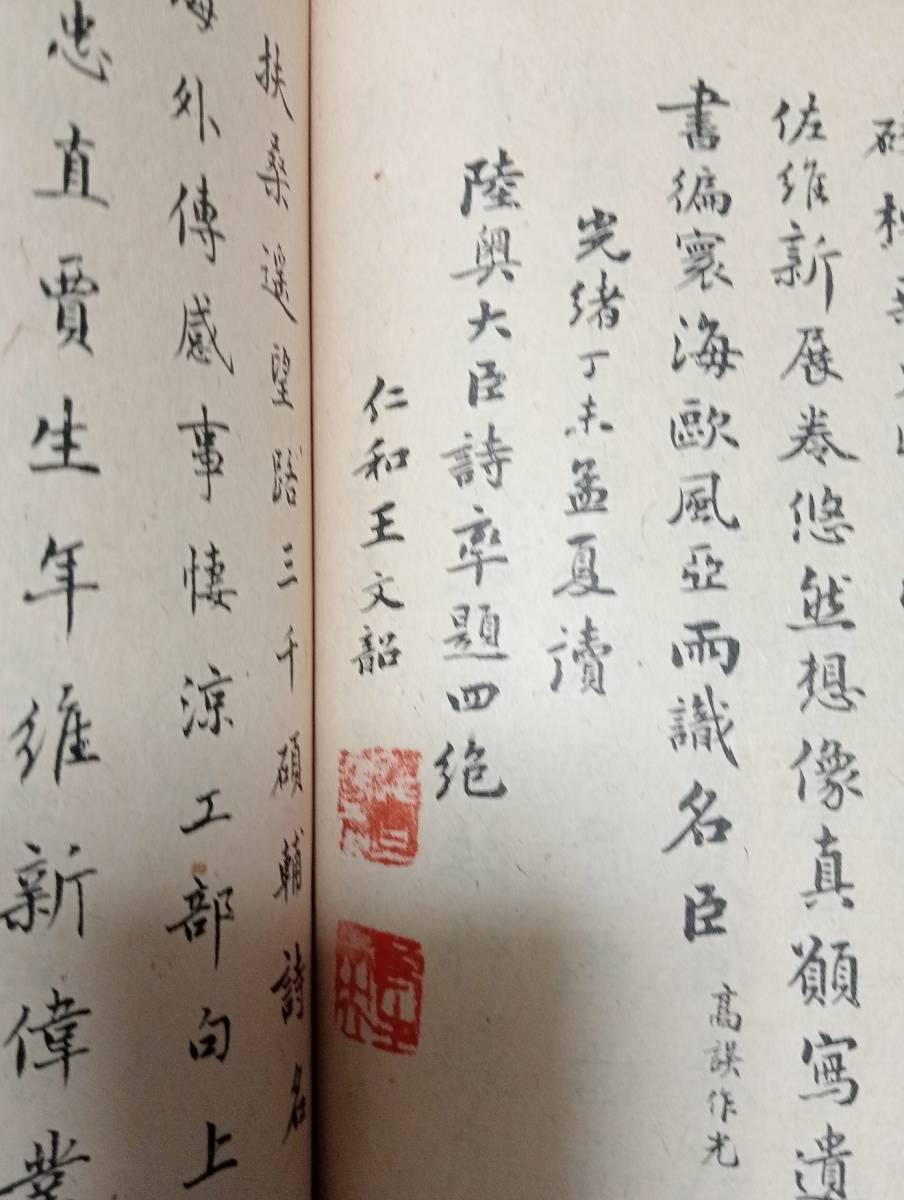 佐維新展卷悠然想像真願寫遺
書編寰海歐風亞雨識名臣
高誤作光
光緒丁未孟夏讀
陸奥大臣詩率題四絶
仁和王文韶
扶桑遥望路三千碩輔詩名
海外傳感事悽涼工部句上
忠直賈生年維新偉業